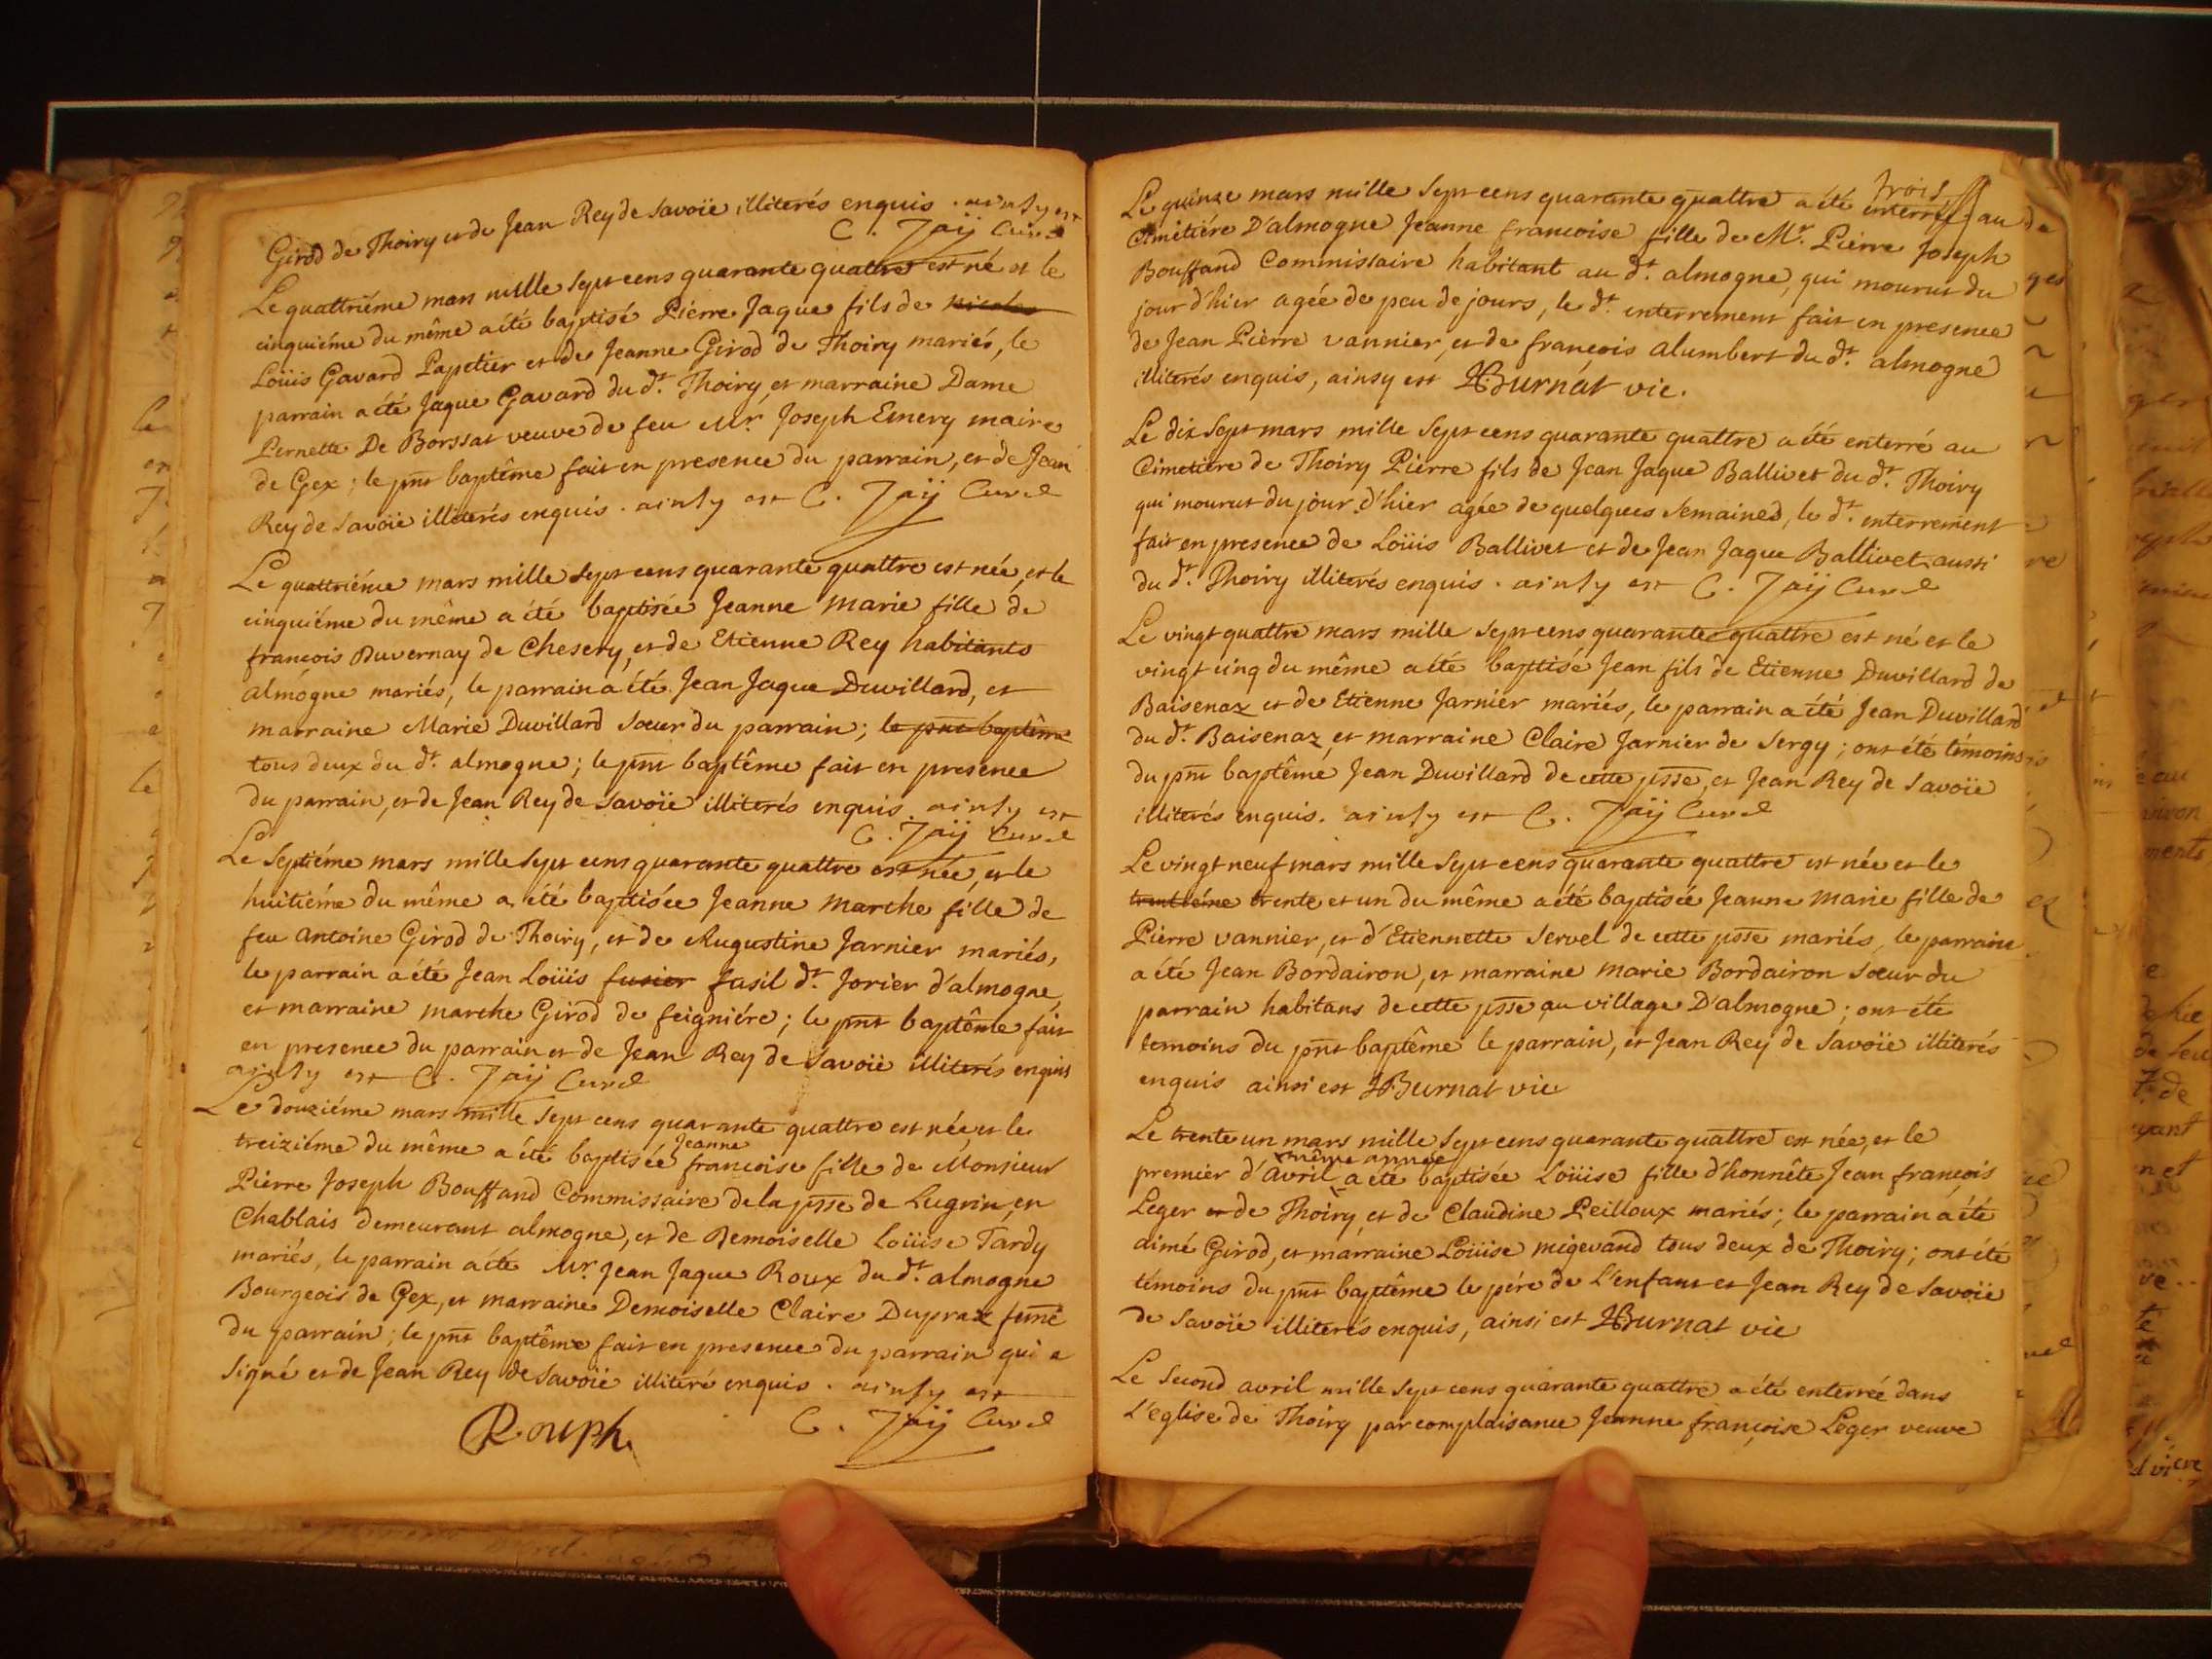 Girod de Thoiry et de Jean Rey de Savoïe illiterés enquis . ainsy est
C. Jaÿ Curé
Le quattriéme mars mille sept cens quarante quattre est né et le
cinquiéme du même a été baptisé Pierre Jaque fils de nicolas
Loüis Gavard Papetier et de Jeanne Girod de Thoiry mariés, le
parrain a été Jaque Gavard du dt. Thoiry, et marraine Dame
Pernette De Borssat veuve de feu Mr. Joseph Emery maire
de Gex ; le pnt baptême fait en presence du parrain, et de Jean
Rey de Savoïe illiterés enquis . ainsy est C. Jaÿ Curé
Le quattriéme mars mille sept cens quarante quattre est née, et le
cinquiéme du même a été baptisée Jeanne Marie fille de
françois Duvernay de Chesery, et de Etienne Rey habitants
almogne mariés, le parrain a été Jean Jaque Duvillard, et
marraine Marie Duvillard soeur du parrain ; le pnt baptême
tous deux du dt. almogne ; le pnt baptême fait en presence
du parrain, et de Jean Rey de Savoïe illiterés enquis . ainsy est
C. Jaÿ Curé
Le Septiéme mars mille sept cens quarante quattre est née, et le
huitiéme du même a été baptisée Jeanne Marthe fille de
feu antoine Girod de Thoiry, et de Augustine Jarnier mariés,
le parrain a été Jean Loüis fusier fusil dt. Jorier d'almogne,
et marraine marthe Girod de feigniére ; le pnt baptême fait
en presence du parrain et de Jean Rey de Savoïe illiterés enquis
ainsy est C. Jaÿ Curé
Le douziéme mars mille sept cens quarante quattre est née, et le
treiziéme du même a été baptisée Jeanne françoise fille de Monsieur
Pierre Joseph Bouffand Commissaire de la psse de Lugrin en
Chablais demeurant almogne, et de Demoiselle Loüise Tardy
mariés, le parrain a été Mr. Jean Jaque Roux du dt. almogne
Bourgeois de Gex, et marraine Demoiselle Claire Duprax feme
du parrain ; le pnt baptême fait en presence du parrain qui a
signé et de Jean Rey de Savoïe illiteré enquis . ainsy est
C. Jaÿ Curé
Rouph
Le quinze mars mille sept cens quarante quattre a été enterrée au
trois
Cimetiére D'almogne Jeanne francoise fille de Mr. Pierre Joseph
Bouffand Commissaire habitant au dt. almogne, qui mourut du
jour d'hier agée de peu de jours, le dt. enterrement fait en presence
de Jean Pierre vannier, et de françois alumbert du dt. almogne
illiterés enquis, ainsy est Burnat vic.
Le dix Sept mars mille sept cens quarante quattre a été enterré au
Cimetiére de Thoiry Pierre fils de Jean Jaque Ballivet du dt. Thoiry
qui mourut du jour d'hier agée de quelques semaines, le dt. enterrement
fait en presence de Loüis Ballivet et de Jean Jaque Ballivet aussi
du dt. Thoiry illiterés enquis . ainsy est C. Jaÿ Curé
Le vingt quattre mars mille sept cens quarante quattre est né et le
vingt cinq du même a été baptisé Jean fils de Etienne Duvillard de
Baisenaz et de Etienne Jarnier mariés, le parrain a été Jean Duvillard
du dt. Baisenaz, et marraine Claire Jarnier de Sergy ; ont été témoins
du pnt baptême Jean Duvillard de cette psse, et Jean Rey de Savoïe
illiterés enquis. ainsy est C. Jaÿ Curé
Le vingt neuf mars mille sept cens quarante quattre est née et le
trentiéme trente et un du même a été baptisée Jeanne Marie fille de
Pierre vannier, et d'Etiennette Servel de cette psse mariés, le parrain
a été Jean Bordairon, et marraine Marie Bordairon soeur du
parrain habitans de cette psse au village D'almogne ; ont été
temoins du pnt baptême le parrain, et Jean Rey de Savoïe illiterés
enquis ainsi est Burnat vic
Le trente un mars mille sept cens quarante quattre est née, et le
même année
premier d'Avril a été baptisée Loüise fille d'honnête Jean françois
Leger et de Thoiry, et de Claudine Peilloux mariés ; le parrain a été
aimé Girod, et marraine Loüise migevand tous deux de Thoiry ; ont été
témoins du pnt baptême le pére de L'enfant et Jean Rey de Savoïe
de Savoïe illiterés enquis, ainsi est Burnat vic
Le Second avril mille sept cens quarante quattre a été enterrée dans
L'eglise de Thoiry par complaisance Jeanne françoise Leger veuve